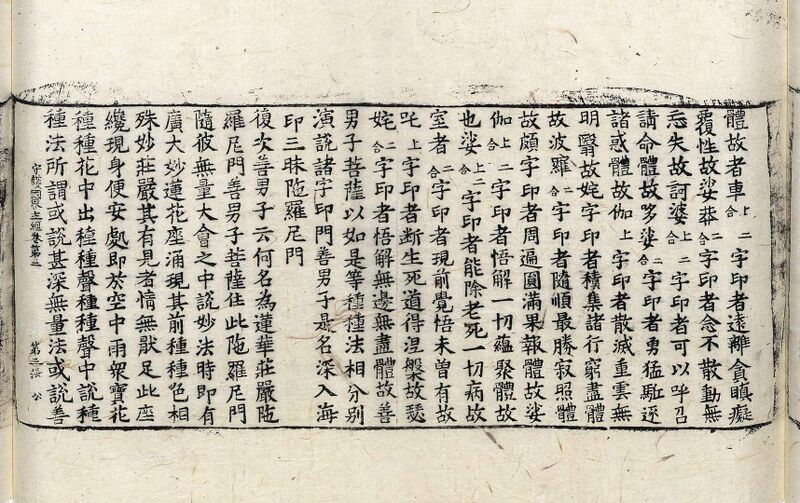 體故者車上二合字印者遠離貪瞋癡
覆性故娑莽二合字印者念不散動無
忘失故訶婆上二合字印者可以呼召
請命體故哆娑二合字印者勇猛駈逐
諸惑體故伽上字印者散滅重雲無
明翳故姹字印者積集諸行窮盡體
故波羅二合字印者隨順最勝寂照體
故頗字印者周遍圓滿果報體故娑
伽上二合字印者悟解一切蘊聚體故
也娑上二合字印者能除老死一切病故
室者二合字印者現前覺悟未曾有故
吒上字印者断生死道得涅槃故瑟
姹二合字印者悟解無邊無盡體故善
男子菩薩以如是等種種法相分別
演說諸字印門善男子是名深入海
印三昧陁羅尼門
復次善男子云何名為蓮華莊嚴陁
羅尼門善男子菩薩住此陁羅尼門
隨彼無量大會之中說妙法時即有
廣大妙蓮花座涌現其前種種色相
殊妙莊嚴其有見者情無猒足此座
纔現身便安處即於空中雨衆寶花
種種花中出種種聲種種聲中說種
種法所謂或說甚深無量法或說善
守護國界主經卷第三 第二張 公